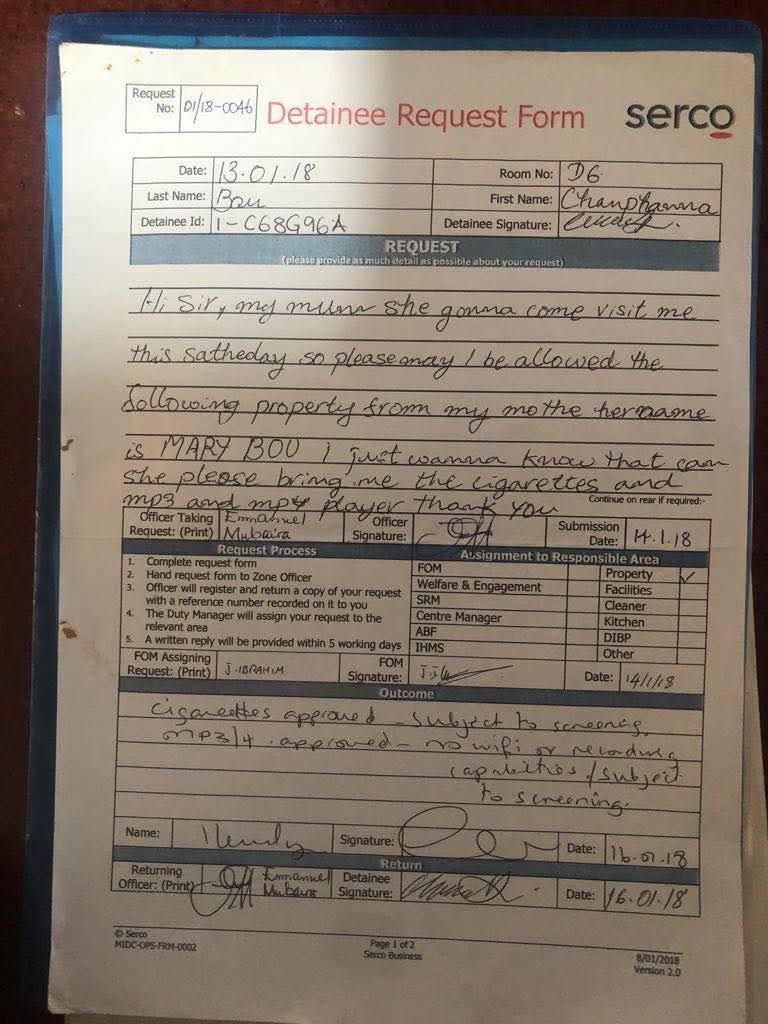 Request
No: 01/18-0046
Detainee Request Form
serco
Date: 13.01.18 Room No: D6
Last Name: Bou First Name: Chanphanna
Detainee Id: 1-C68G96A Detainee Signature:
REQUEST
(please provide as much detail as possible about your request)
Hi Sir, my mum she gonna come visit me
this satheday so please may I be allowed the
following property from my mothe her name
is MARY BOU I just wanna know that can
she please bring me the cigarettes and
mp3 and mp4 player thank you
Continue on rear if required:-
Officer Taking Emmanuel Officer Submission
Request: (Print) Mubaira Signature: Date: 14.1.18
Request Process Assignment to Responsible Area
1. Complete request form
2. Hand request form to Zone Officer
3. Officer will register and return a copy of your request
with a reference number recorded on it to you
4. The Duty Manager will assign your request to the
relevant area
5. A written reply will be provided within 5 working days
FOM Property ✓
Welfare & Engagement Facilities
SRM Cleaner
Centre Manager Kitchen
ABF DIBP
IHMS Other
FOM Assigning FOM
Request: (Print) J-IBRAHIM Signature: Date: 14/1/18
Outcome
Cigarettes approved - subject to screening.
MP3/4 approved - no wifi or recording
capabilities / subject
to screening.
Name: Signature: Date: 16.01.18
Return
Returning Emmanuel Detainee
Officer: (Print) Mubaira Signature: Date: 16.01.18
© Serco
MIDC-OPS-FRM-0002
Page 1 of 2
Serco Business
8/01/2018
Version 2.0